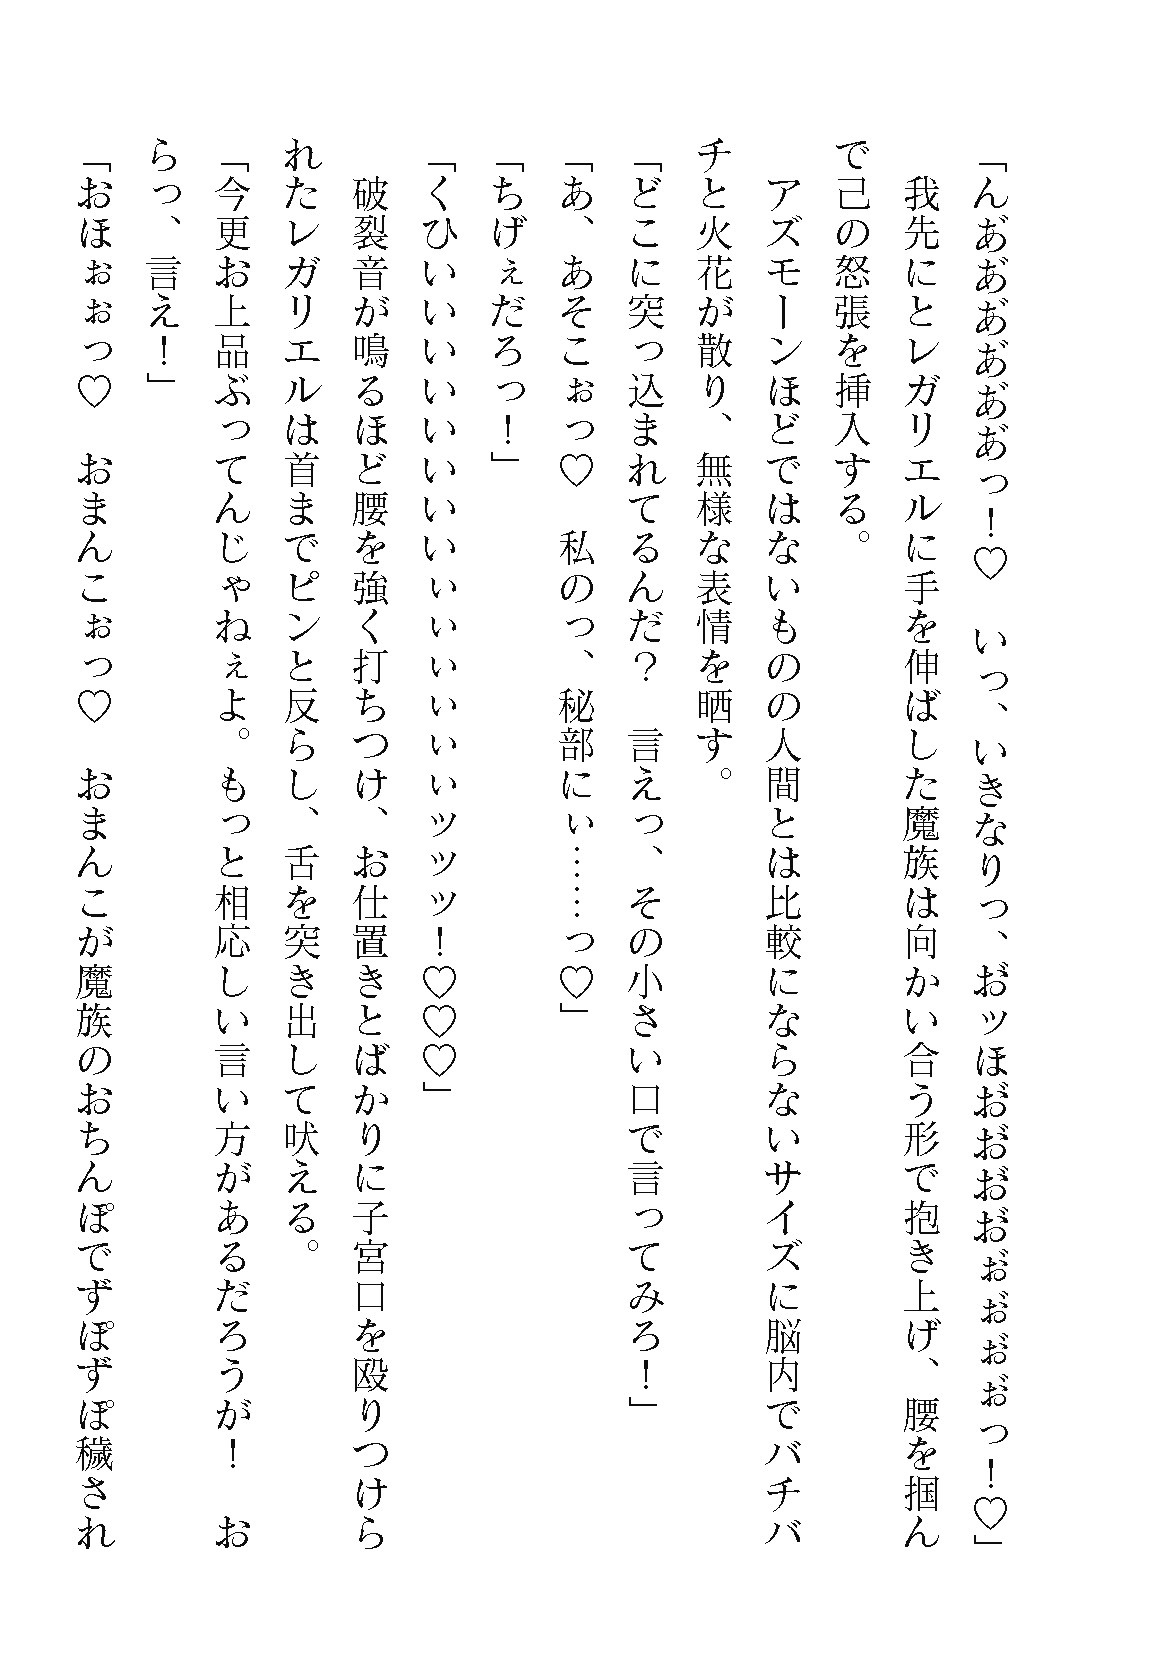 「んあ゙あ゙あ゙あ゙あ゙あ゙っ！♡　いっ、いきなりっ、お゙ッほお゙お゙お゙お゙ぉ゙ぉ゙ぉ゙ぉ゙っ！♡」
　我先にとレガリエルに手を伸ばした魔族は向かい合う形で抱き上げ、腰を掴ん
で己の怒張を挿入する。
　アズモーンほどではないものの人間とは比較にならないサイズに脳内でバチバ
チと火花が散り、無様な表情を晒す。
「どこに突っ込まれてるんだ？　言えっ、その小さい口で言ってみろ！」
「あ、あそこぉっ♡　私のっ、秘部にぃ……っ♡」
「ちげぇだろっ！」
「くひいいいいいいいいぃぃぃぃぃぃッッッ！♡♡♡」
　破裂音が鳴るほど腰を強く打ちつけ、お仕置きとばかりに子宮口を殴りつけら
れたレガリエルは首までピンと反らし、舌を突き出して吠える。
「今更お上品ぶってんじゃねぇよ。もっと相応しい言い方があるだろうが！　お
らっ、言え！」
「おほぉぉっ♡　おまんこぉっ♡　おまんこが魔族のおちんぽでずぽずぽ穢され